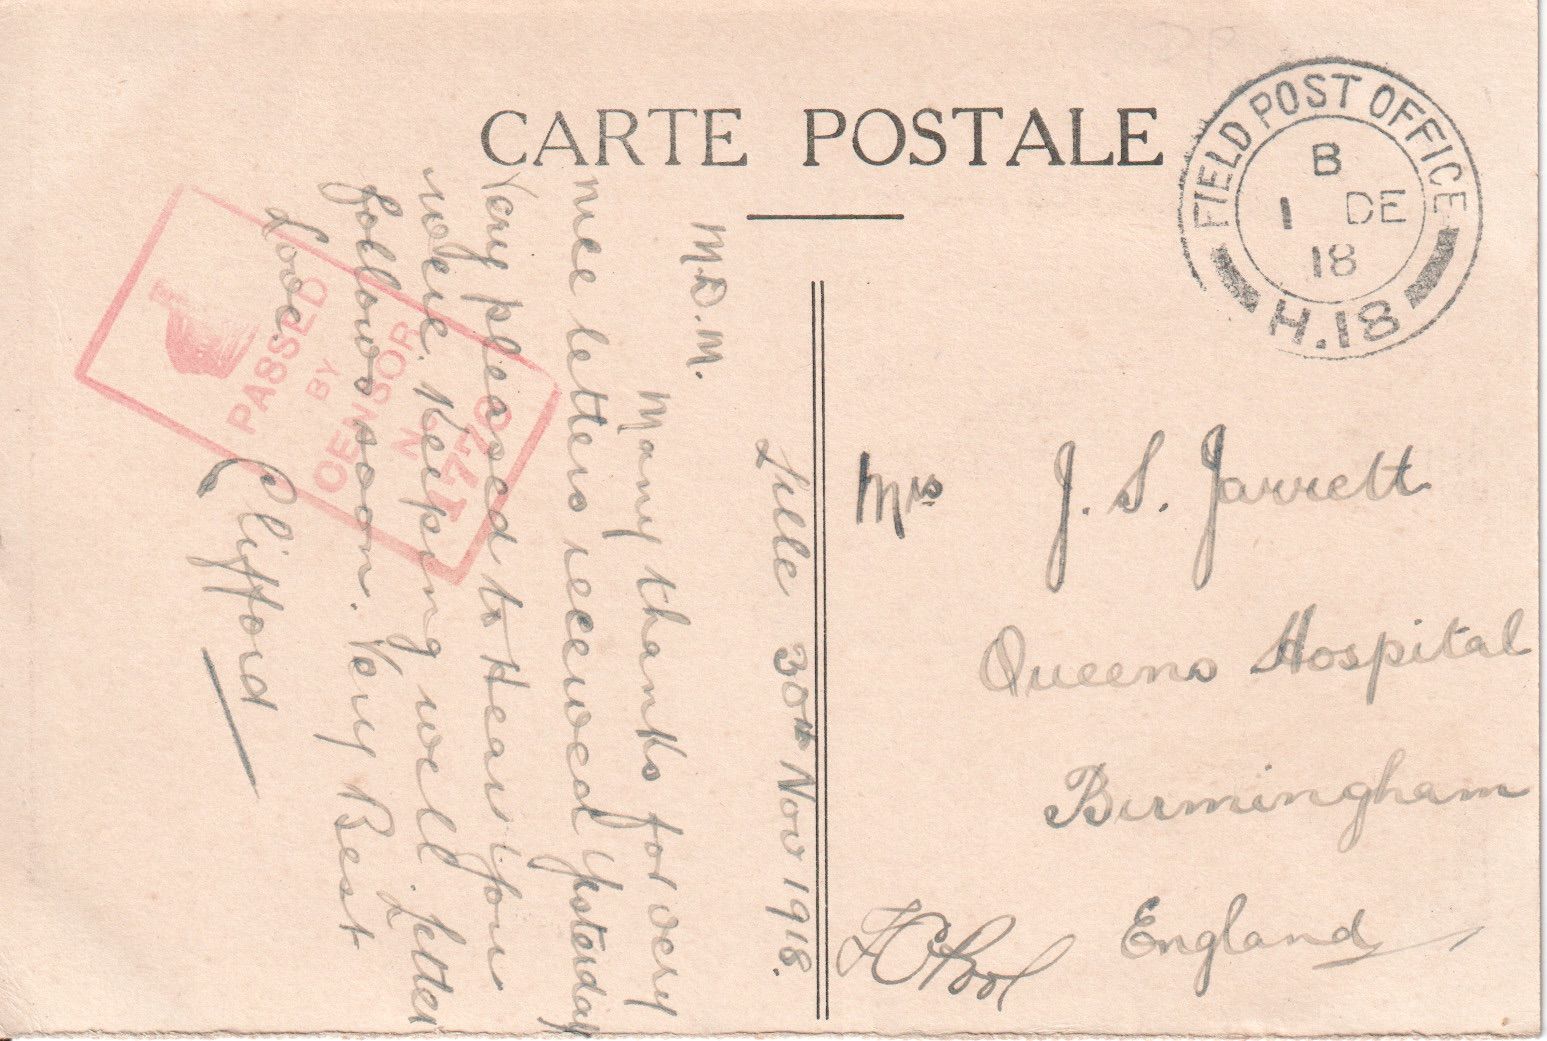 CARTE POSTALE
FIELD POST OFFICE
B
1 DE
18
H.18
PASSED
BY
CENSOR
No
1776
Lille 30th Nov 1918.
M.D.M.
Many thanks for very
nice letters received ysterday
Very pleased to Hear you
were Keeping well. Letter
follows soon. Very Best
Love
Clifford
Mrs J. S. Jarrett
Queens Hospital
Birmingham
England